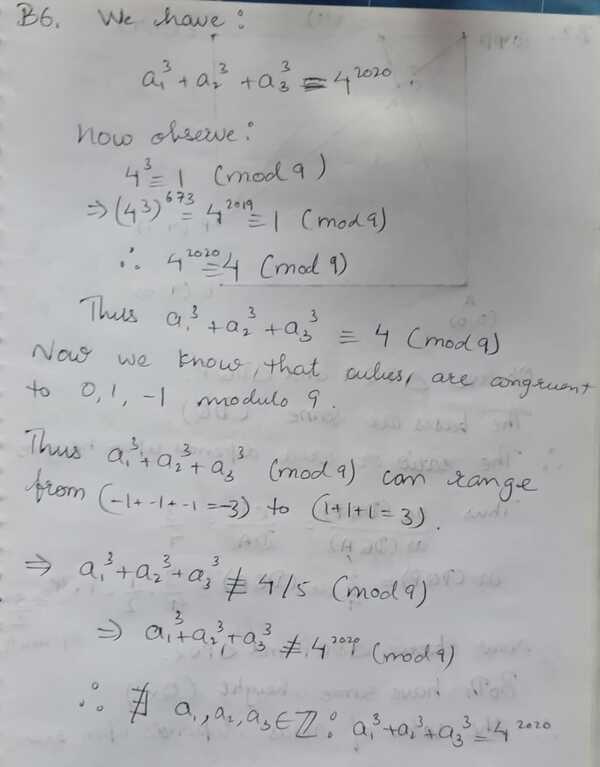 B6. We have:
a₁³ + a₂³ + a₃³ = 4²⁰²⁰.
Now observe:
4³ ≡ 1 (mod 9)
⇒ (4³)⁶⁷³ = 4²⁰¹⁹ ≡ 1 (mod 9)
∴ 4²⁰²⁰ ≡ 4 (mod 9)
Thus a₁³ + a₂³ + a₃³ ≡ 4 (mod 9)
Now we know, that cubes, are congruent
to 0, 1, -1 modulo 9.
Thus a₁³ + a₂³ + a₃³ (mod 9) can range
from (-1 + -1 + -1 = -3) to (1+1+1 = 3).
⇒ a₁³ + a₂³ + a₃³ ≢ 4/5 (mod 9)
⇒ a₁³ + a₂³ + a₃³ ≢ 4²⁰²⁰ (mod 9)
∴ ∄ a₁, a₂, a₃ ∈ ℤ : a₁³ + a₂³ + a₃³ = 4²⁰²⁰